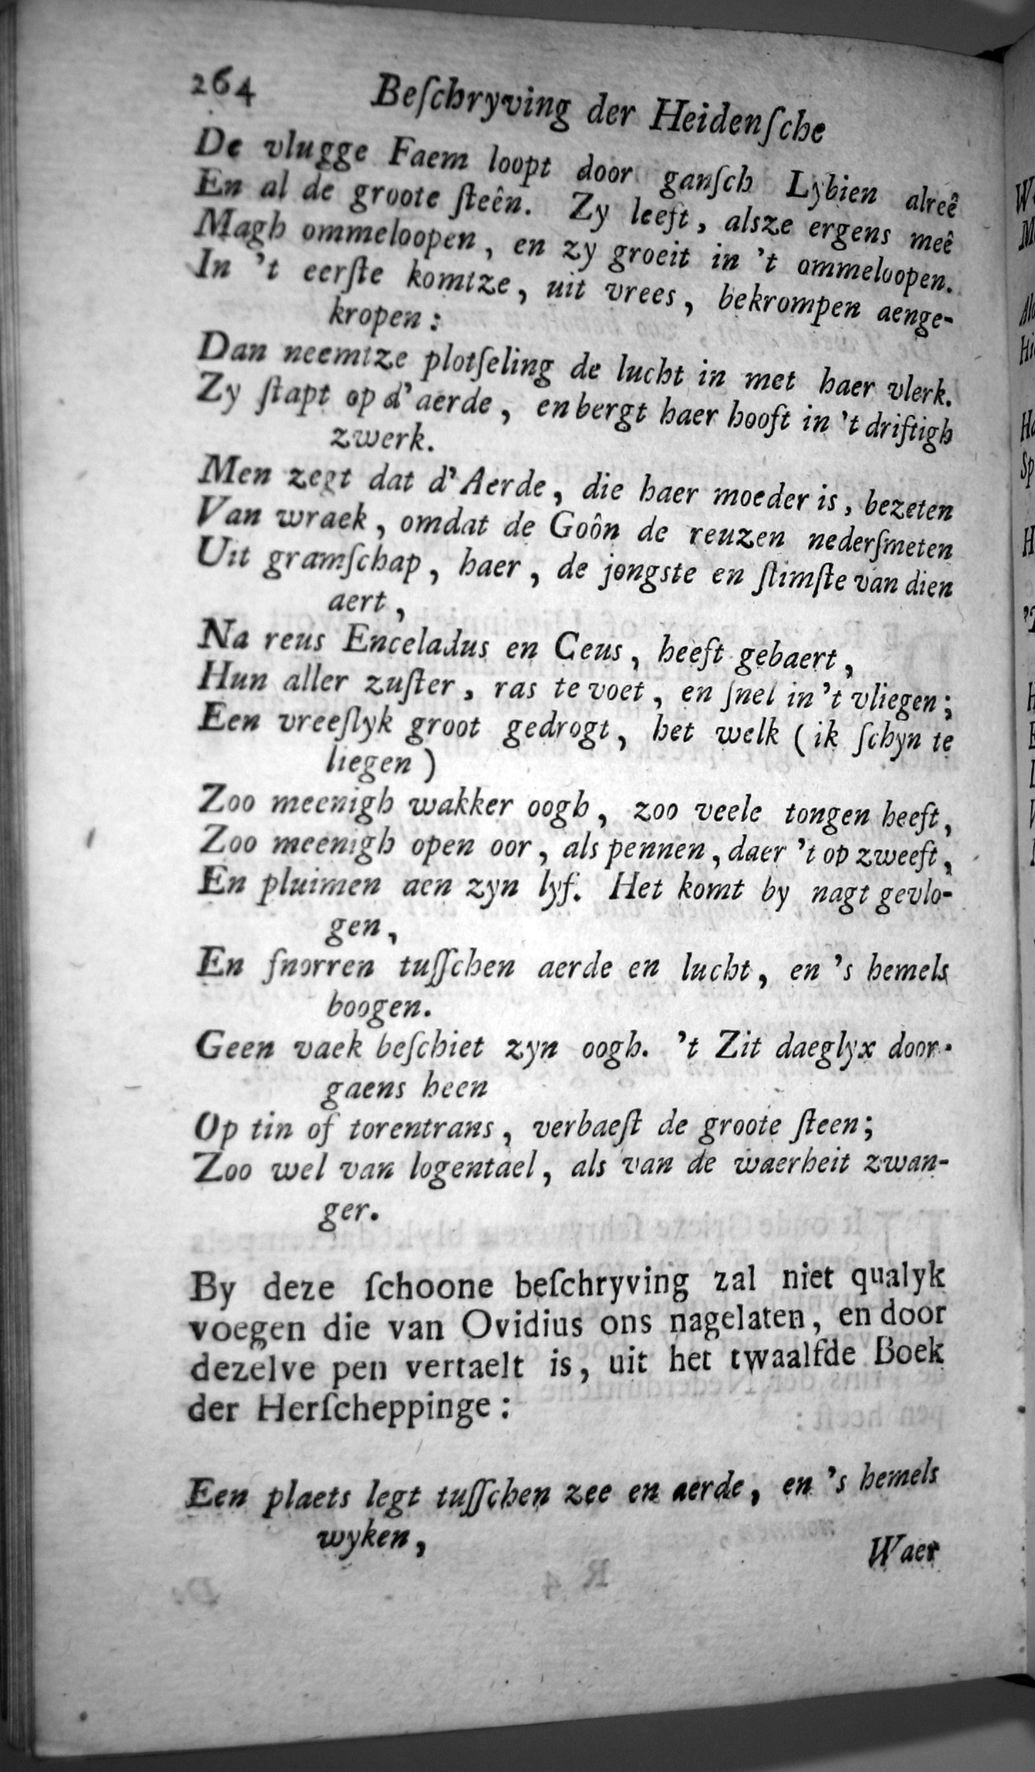 264 Beſchryving der Heidenſche
De vlugge Faem loopt door ganſch Lybien alreê
En al de groote ſteên. Zy leeft, alsze ergens meê
Magh ommeloopen, en zy groeit in 't ommeloopen.
In 't eerſte komtze, uit vrees, bekrompen aenge-
kropen:
Dan neemtze plotſeling de lucht in met haer vlerk.
Zy ſtapt op d'aerde, en bergt haer hooft in 't driftigh
zwerk.
Men zegt dat d'Aerde, die haer moeder is, bezeten
Van wraek, omdat de Goôn de reuzen nederſmeten
Uit gramſchap, haer, de jongste en ſlimſte van dien
aert,
Na reus Enceladus en Ceus, heeft gebaert,
Hun aller zuſter, ras te voet, en ſnel in 't vliegen;
Een vreeſlyk groot gedrogt, het welk (ik ſchyn te
liegen)
Zoo meenigh wakker oogh, zoo veele tongen heeft,
Zoo meenigh open oor, als pennen, daer 't op zweeft,
En pluimen aen zyn lyf. Het komt by nagt gevlo-
gen,
En ſnorren tuſſchen aerde en lucht, en 's hemels
boogen.
Geen vaek beſchiet zyn oogh. 't Zit daeglyx door-
gaens heen
Op tin of torentrans, verbaeſt de groote ſteen;
Zoo wel van logentael, als van de waerheit zwan-
ger.
By deze ſchoone beſchryving zal niet qualyk
voegen die van Ovidius ons nagelaten, en door
dezelve pen vertaelt is, uit het twaalfde Boek
der Herſcheppinge:
Een plaets legt tuſſchen zee en aerde, en 's hemels
wyken,
Waer